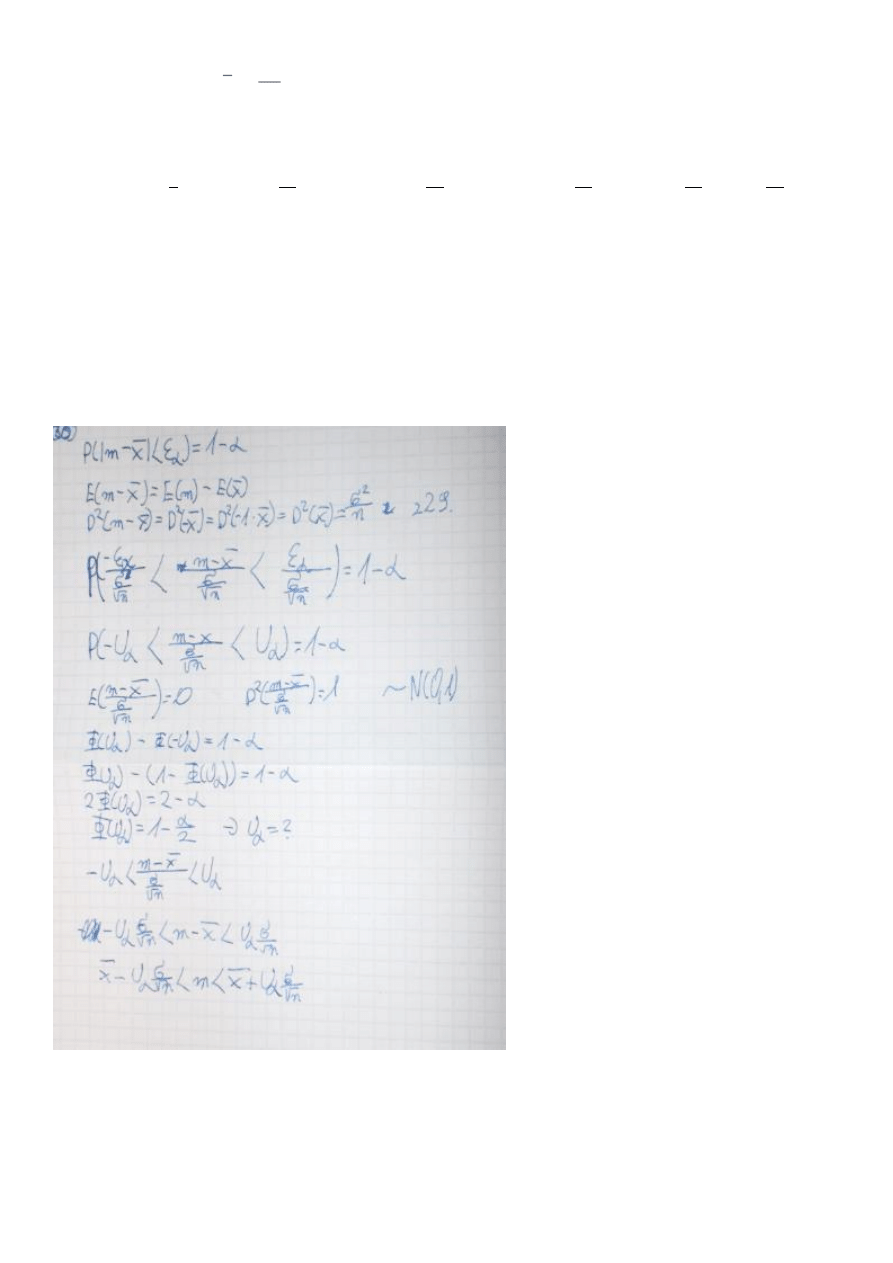 30
P(|m-x̄|<ε_α)=1-α
E(m-x̄)=E(m)-E(x̄)
D²(m-x̄)=D²(-x̄)=D²(-1·x̄)=D²(x̄)=σ²/n z 229.
P(-ε_α/(σ/√n) < (m-x̄)/(σ/√n) < ε_α/(σ/√n))=1-α
P(-U_α < (m-x)/(σ/√n) < U_α)=1-α
E((m-x̄)/(σ/√n))=0 D²((m-x̄)/(σ/√n))=1 ~N(0,1)
Φ(U_α) - Φ(-U_α)=1-α
Φ(U_α) - (1-Φ(U_α))=1-α
2Φ(U_α)=2-α
Φ(U_α)=1-α/2 → U_α=?
-U_α < (m-x̄)/(σ/√n) < U_α
-U_α σ/√n < m-x̄ < U_α σ/√n
x̄-U_α σ/√n < m < x̄+U_α σ/√n